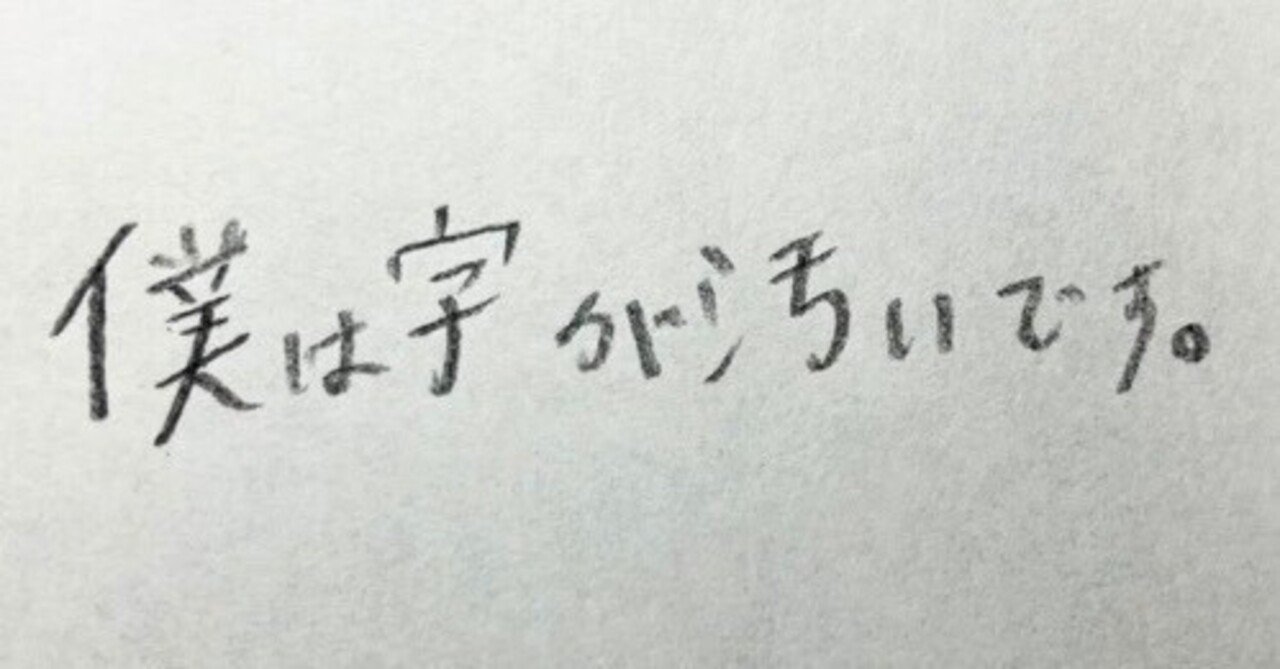 僕は字が汚いです。